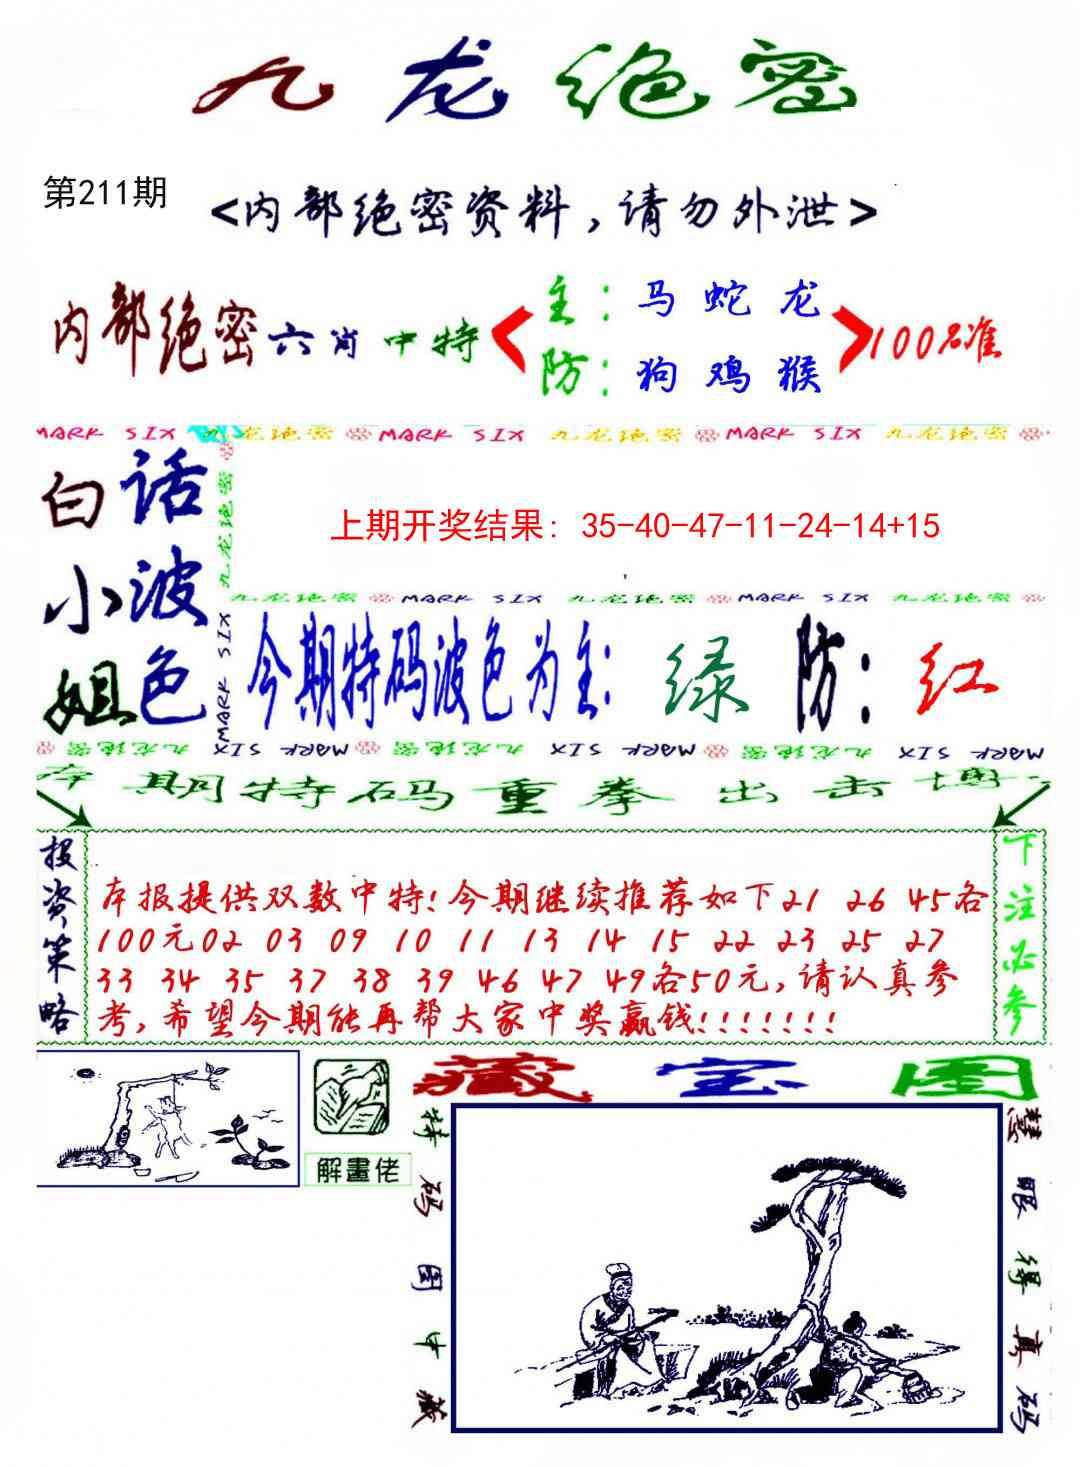 九龙绝密
第211期
<内部绝密资料,请勿外泄>
内部绝密六肖中特
主:马 蛇 龙
防:狗 鸡 猴
100%准
MARK SIX 九龙绝密 MARK SIX 九龙绝密 MARK SIX 九龙绝密
白小姐
话波色
九龙绝密 MARK SIX
上期开奖结果: 35-40-47-11-24-14+15
九龙绝密 MARK SIX 九龙绝密 MARK SIX 九龙绝密
今期特码波色为主:绿 防:红
九龙绝密 MARK SIX 九龙绝密 MARK SIX 九龙绝密 MARK SIX
本期特码重拳出击博
投资策略
本报提供双数中特!今期继续推荐如下21 26 45各
100元02 03 09 10 11 13 14 15 22 23 25 27
33 34 35 37 38 39 46 47 49各50元,请认真参
考,希望今期能再帮大家中奖赢钱!!!!!!!
下注必参
解畫佬
藏宝图
特码图中藏
慧眼得真码